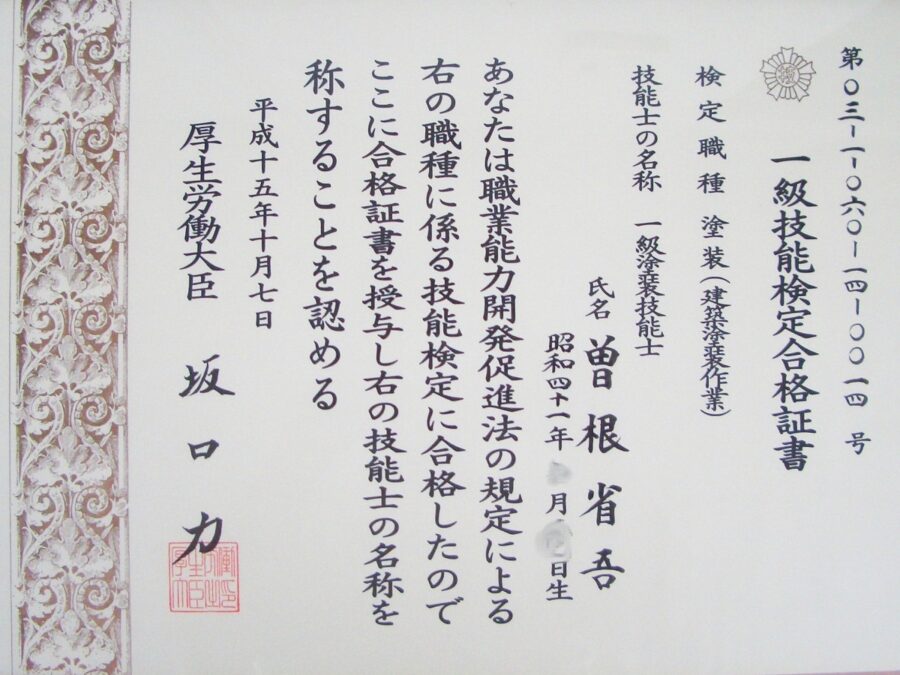 第〇三-一-〇六〇-一四-〇〇一四号
一級技能検定合格証書
検定職種 塗装(建築塗装作業)
技能士の名称 一級塗装技能士
氏名 曽根省吾
昭和四十一年 月 日生
あなたは職業能力開発促進法の規定による
右の職種に係る技能検定に合格したので
ここに合格証書を授与し右の技能士の名称を
称することを認める
平成十五年十月七日
厚生労働大臣 坂口力